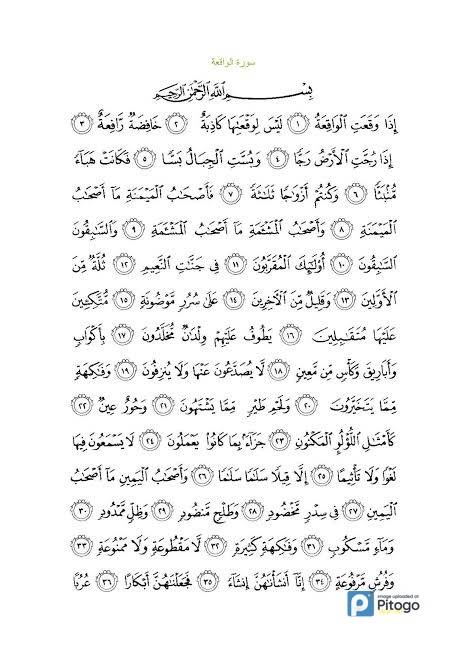 سورة الواقعة
بِسْمِ اللَّهِ الرَّحْمَٰنِ الرَّحِيمِ
إِذَا وَقَعَتِ الْوَاقِعَةُ ١ لَيْسَ لِوَقْعَتِهَا كَاذِبَةٌ ٢ خَافِضَةٌ رَّافِعَةٌ ٣
إِذَا رُجَّتِ الْأَرْضُ رَجًّا ٤ وَبُسَّتِ الْجِبَالُ بَسًّا ٥ فَكَانَتْ هَبَاءً
مُّنبَثًّا ٦ وَكُنتُمْ أَزْوَاجًا ثَلَاثَةً ٧ فَأَصْحَابُ الْمَيْمَنَةِ مَا أَصْحَابُ
الْمَيْمَنَةِ ٨ وَأَصْحَابُ الْمَشْئَمَةِ مَا أَصْحَابُ الْمَشْئَمَةِ ٩ وَالسَّابِقُونَ
السَّابِقُونَ ١٠ أُولَٰئِكَ الْمُقَرَّبُونَ ١١ فِي جَنَّاتِ النَّعِيمِ ١٢ ثُلَّةٌ مِّنَ
الْأَوَّلِينَ ١٣ وَقَلِيلٌ مِّنَ الْآخِرِينَ ١٤ عَلَىٰ سُرُرٍ مَّوْضُونَةٍ ١٥ مُّتَّكِئِينَ
عَلَيْهَا مُتَقَابِلِينَ ١٦ يَطُوفُ عَلَيْهِمْ وِلْدَانٌ مُّخَلَّدُونَ ١٧ بِأَكْوَابٍ
وَأَبَارِيقَ وَكَأْسٍ مِّن مَّعِينٍ ١٨ لَّا يُصَدَّعُونَ عَنْهَا وَلَا يُنزِفُونَ ١٩ وَفَاكِهَةٍ
مِّمَّا يَتَخَيَّرُونَ ٢٠ وَلَحْمِ طَيْرٍ مِّمَّا يَشْتَهُونَ ٢١ وَحُورٌ عِينٌ ٢٢
كَأَمْثَالِ اللُّؤْلُؤِ الْمَكْنُونِ ٢٣ جَزَاءً بِمَا كَانُوا يَعْمَلُونَ ٢٤ لَا يَسْمَعُونَ فِيهَا
لَغْوًا وَلَا تَأْثِيمًا ٢٥ إِلَّا قِيلًا سَلَامًا سَلَامًا ٢٦ وَأَصْحَابُ الْيَمِينِ مَا أَصْحَابُ
الْيَمِينِ ٢٧ فِي سِدْرٍ مَّخْضُودٍ ٢٨ وَطَلْحٍ مَّنضُودٍ ٢٩ وَظِلٍّ مَّمْدُودٍ ٣٠
وَمَاءٍ مَّسْكُوبٍ ٣١ وَفَاكِهَةٍ كَثِيرَةٍ ٣٢ لَّا مَقْطُوعَةٍ وَلَا مَمْنُوعَةٍ ٣٣
وَفُرُشٍ مَّرْفُوعَةٍ ٣٤ إِنَّا أَنشَأْنَاهُنَّ إِنشَاءً ٣٥ فَجَعَلْنَاهُنَّ أَبْكَارًا ٣٦ عُرُبًا
image uploaded at
Pitogo